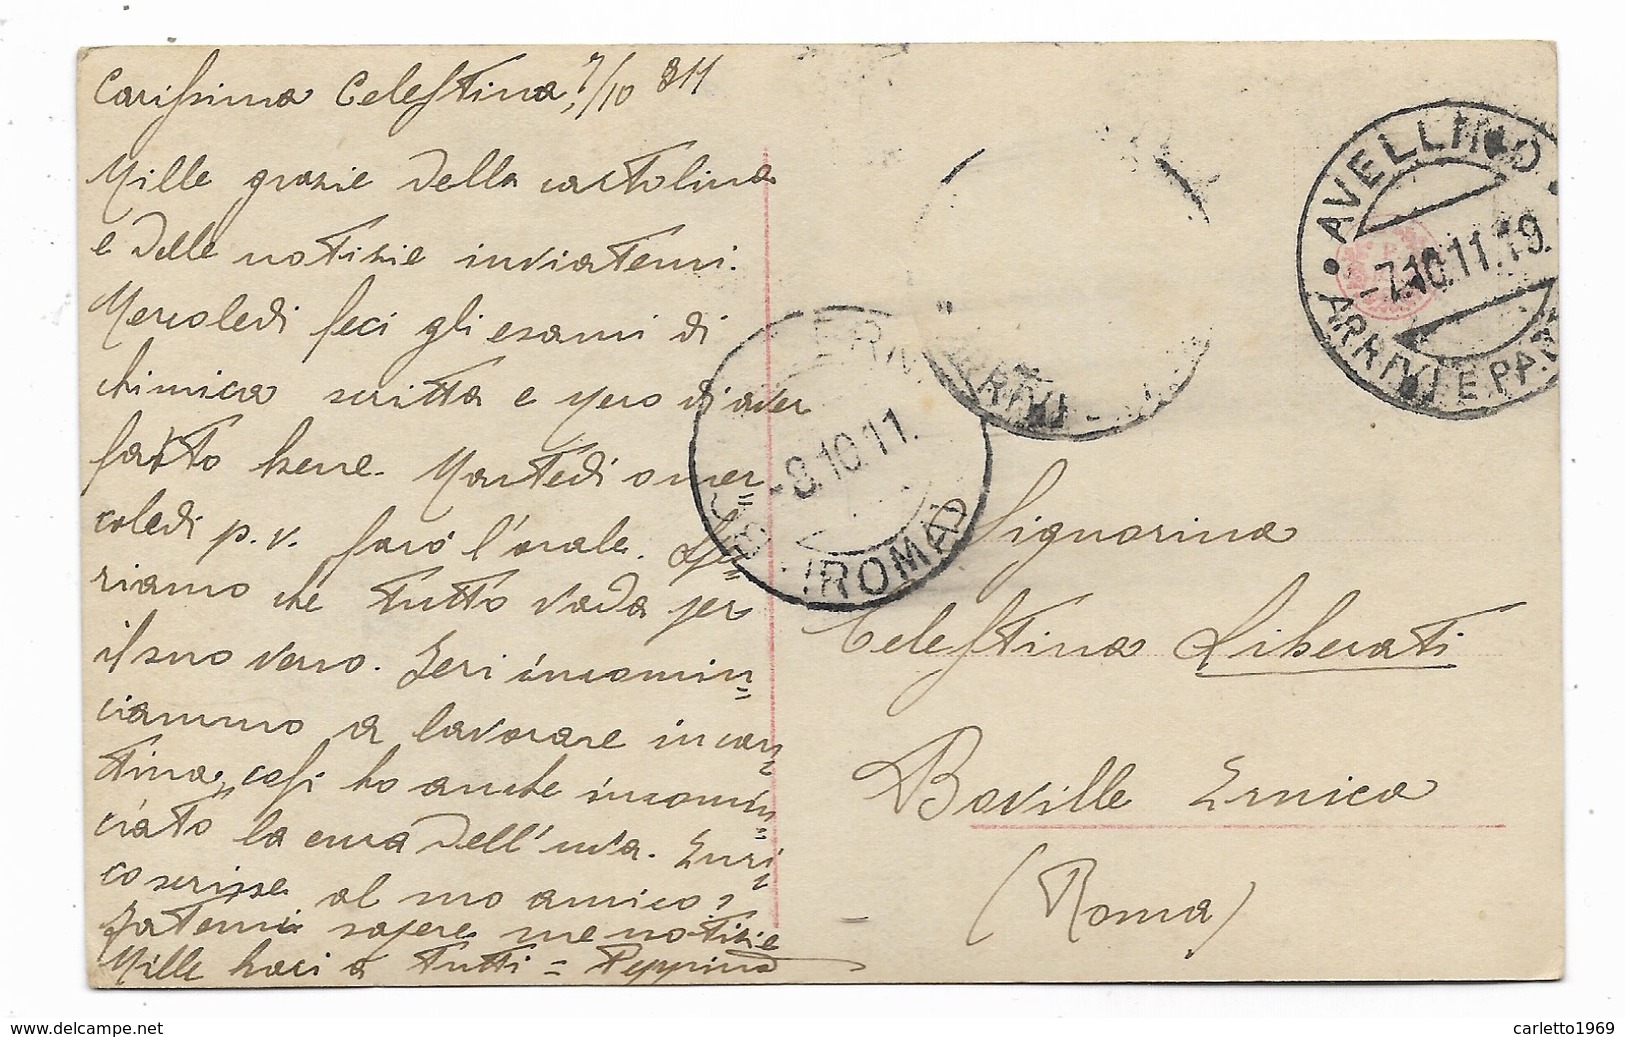 Carissima Celestina, 7/10 911
Mille grazie della cartolina
e delle notizie inviatemi.
Mercoledi feci gli esami di
chimica scritta e spero di aver
fatto bene. Martedi o mer=
coledi p. v. farò l'orale. Spe=
riamo che tutto vada per
il suo verso. Ieri incomin=
ciammo a lavorare in can=
tina, così ho anche incomin=
ciato la cura dell'uva. Enri=
co scrisse al suo amico?
Fatemi sapere sue notizie
Mille baci a tutti = Peppino
Signorina
Celestina Liberati
Boville Ernica
(Roma)
AVELLINO
-7.10.11.19.
ARRIVI E PAR
-8.10.11.
(ROMA)
carletto1969